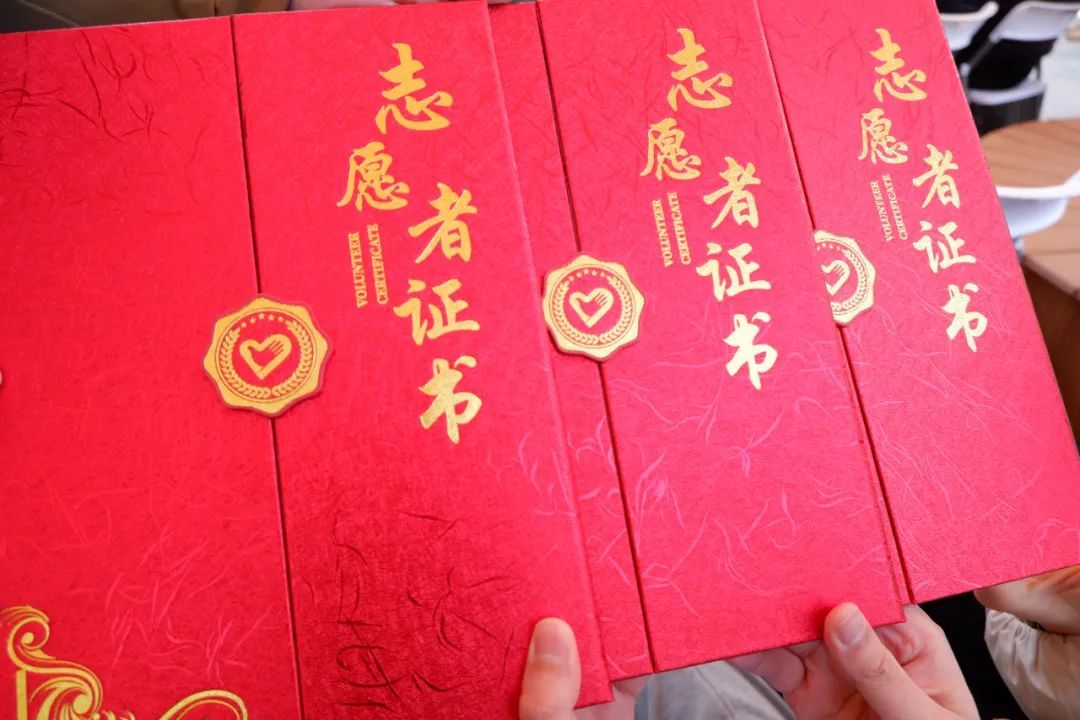 志愿者证书
VOLUNTEER
CERTIFICATE
志愿者证书
VOLUNTEER
CERTIFICATE
志愿者证书
VOLUNTEER
CERTIFICATE